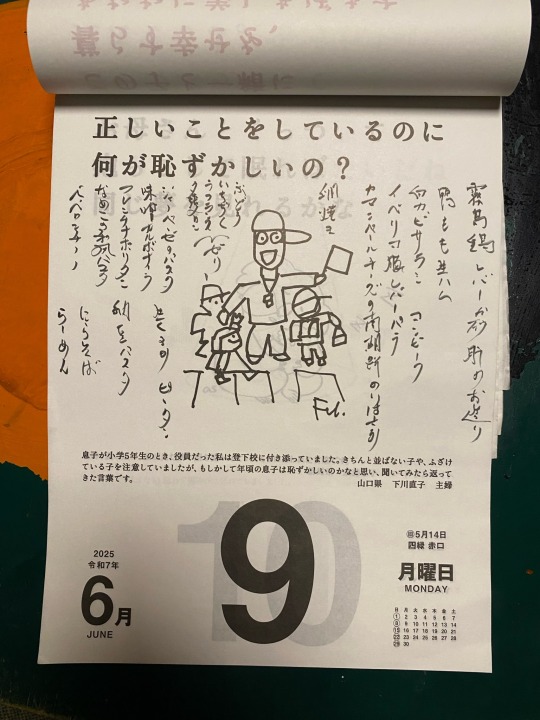 正しいことをしているのに
何が恥ずかしいの？
霧島鶏レバーか砂肝のお造り
鴨もも生ハム
白カビサラミ コンビーフ
イベリコ豚レバーパテ
カマンベールチーズの
網焼き
ぶどう
いちじく
ジェノベーゼパスタ
味噌カルボナーラ
フレンチナポリタン
なめこ和風パスタ
ペペロンチーノ
にらそば
らーめん
Fil.
息子が小学5年生のとき、役員だった私は登下校に付き添っていました。きちんと並ばない子や、ふざけ
ている子を注意していましたが、もしかして年頃の息子は恥ずかしいのかなと思い、聞いてみたら返って
きた言葉です。
山口県 下川直子 主婦
2025
令和7年
6月
JUNE
9
10
旧5月14日
四緑 赤口
月曜日
MONDAY
日 月 火 水 木 金 土
1 2 3 4 5 6 7
8 9 10 11 12 13 14
15 16 17 18 19 20 21
22 23 24 25 26 27 28
29 30